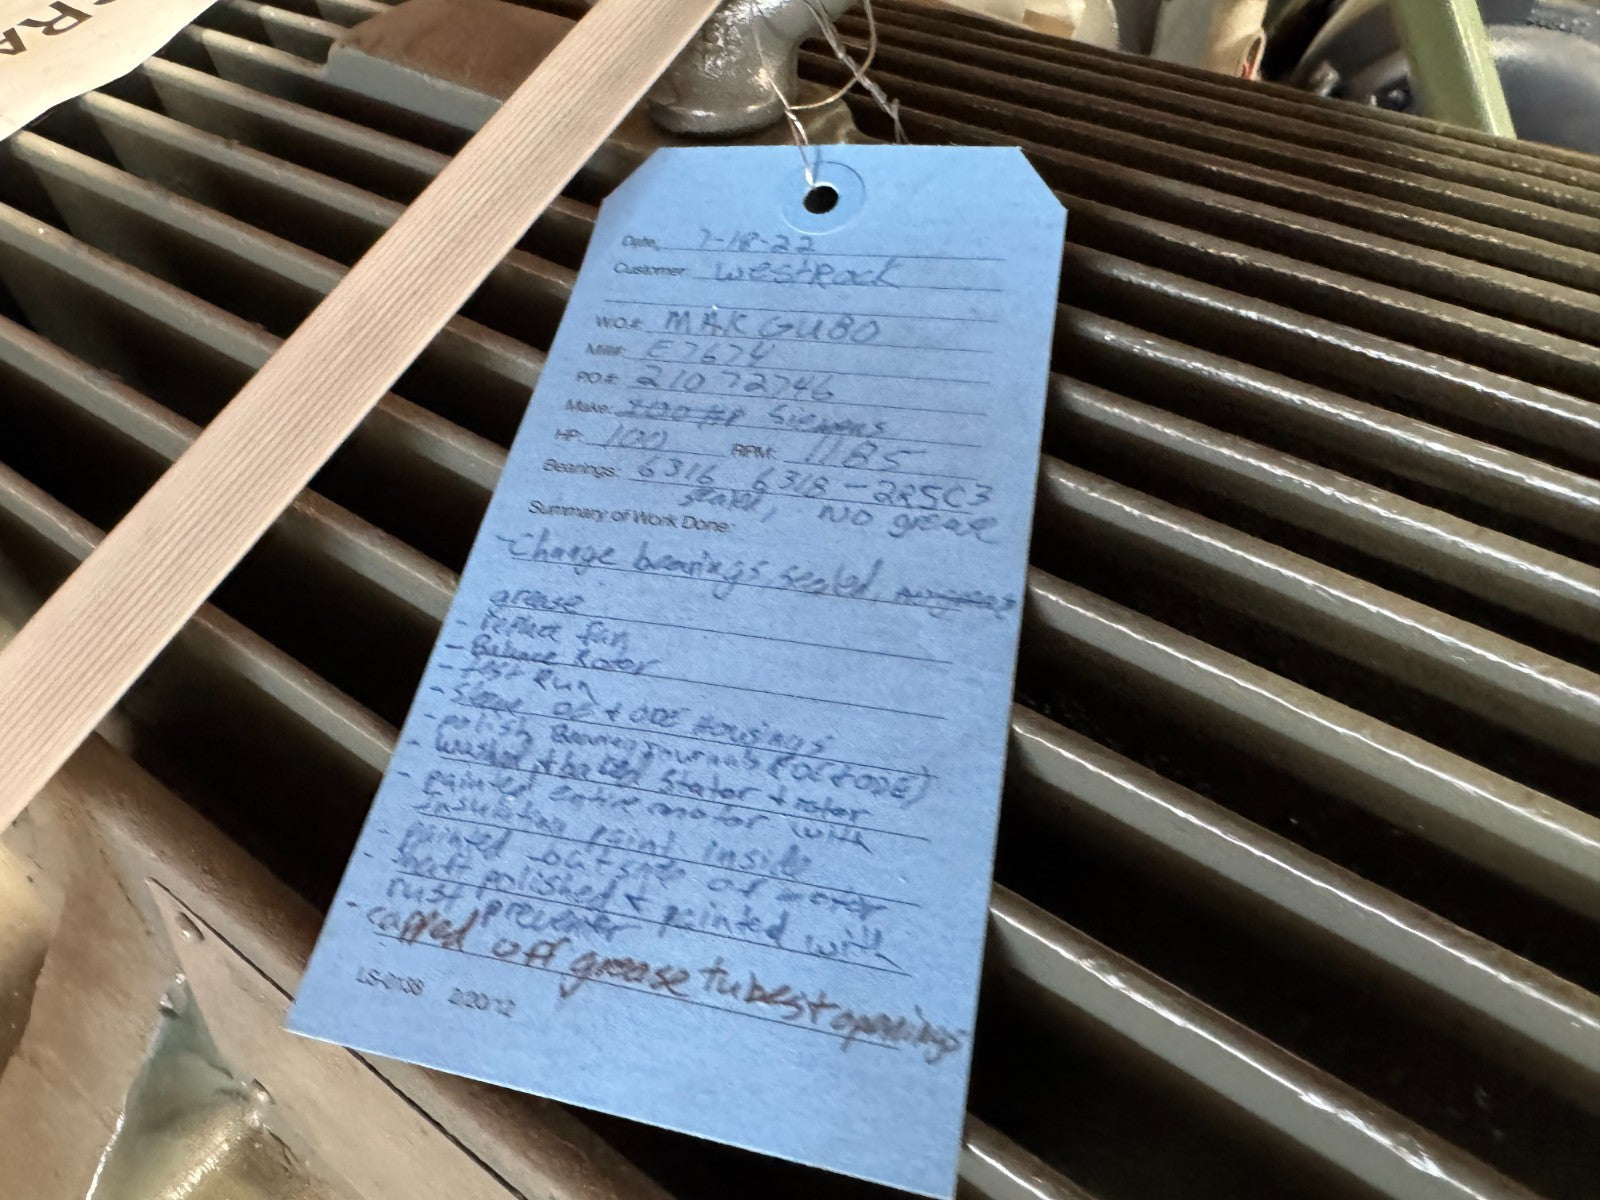 CRA
Date: 7-18-22
Customer: WestRock
W.O.#: MAKGU80
M/I#: E7674
P.O.#: 21072746
Make: 100 HP Siemens
HP: 100 RPM: 1185
Bearings: 6316 6318-2RSC3
sealed, NO grease
Summary of Work Done:
- Change bearings sealed,
grease
- replace fan
- Balance Rotor
- Test Run
- Sleeve DE + ODE Housings
- polish Bearing journals (DE + ODE)
- washed + baked Stator + rotor
- painted entire motor with
insulating paint inside
- painted outside of motor
- shaft polished + painted with
rust preventer
- capped off grease tubes + openings
LS-0138 2/20/12